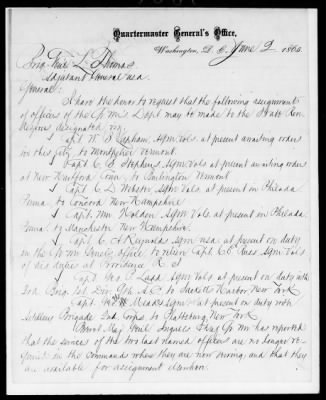 Quartermaster General's Office,
Washington, D. C. June 2 1865.
Brig. Genl L. Thomas
Adjutant General USA
General:
I have the honor to request that the following assignment
of officers of the Qr Mr Dept may be made to the State Ren
dezvous designated, viz:
Capt W. S. AQM Vols. at present awaiting orders
in this city to Montpelier Vermont.
Capt C. E. Stephens AQM Vols at present awaiting orders
at New Conn. to Burlington Vermont
Capt C. D. Webster AQM Vols at present in Philada
Penna to Concord New Hampshire
Capt. Wm Holden AQM Vols at present in Philada
Penna to Manchester New Hampshire
Capt. C. A. Reynolds AQM USA at present on duty
in the Qr Mr Genls office, to relieve Capt C. E. AQM Vols
of his duties at Providence R. I.
Capt Ladd AQM Vols at present on duty with
2nd Brig. 1st Div. 9th A.C. to Sacketts Harbor New York
Capt. Meade AQM at present on duty with
Artillery Brigade 2nd Corps to Plattsburg, New York
Brevt Maj Genl Ingalls Chief Qr Mr has reported
that the services of the two last named officers are no longer re-
quired in the commands where they are now serving, and that they
are available for assignment elsewhere.